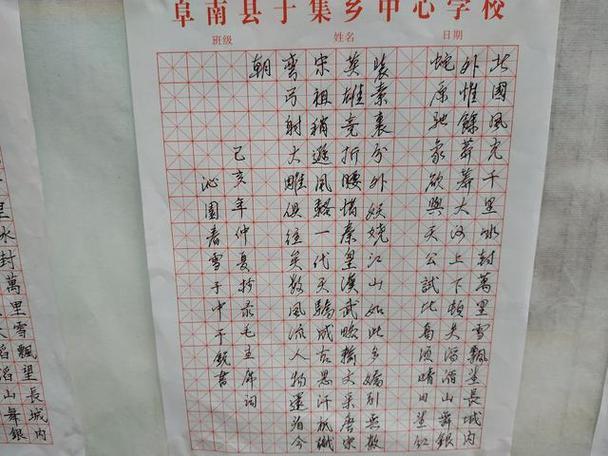 阜南县于集乡中心学校
班级 姓名 日期
北國風光千里冰封萬里雪飄望長城内
外惟餘莽莽大河上下頓失滔滔山舞銀
蛇原馳象欲與天公試比高須晴日望紅
裝素裹分外妖嬈江山如此多嬌引無數
英雄竞折腰惜秦皇漢武略輸文采唐宗
宋祖稍遜風騷一代天驕成吉思汗祇識
彎弓射大雕俱往矣數風流人物還看今
朝
己亥年仲夏抄录毛主席詞
沁園春雪于中于銳書
里冰封萬里雪飄望長城内
滔滔山舞銀